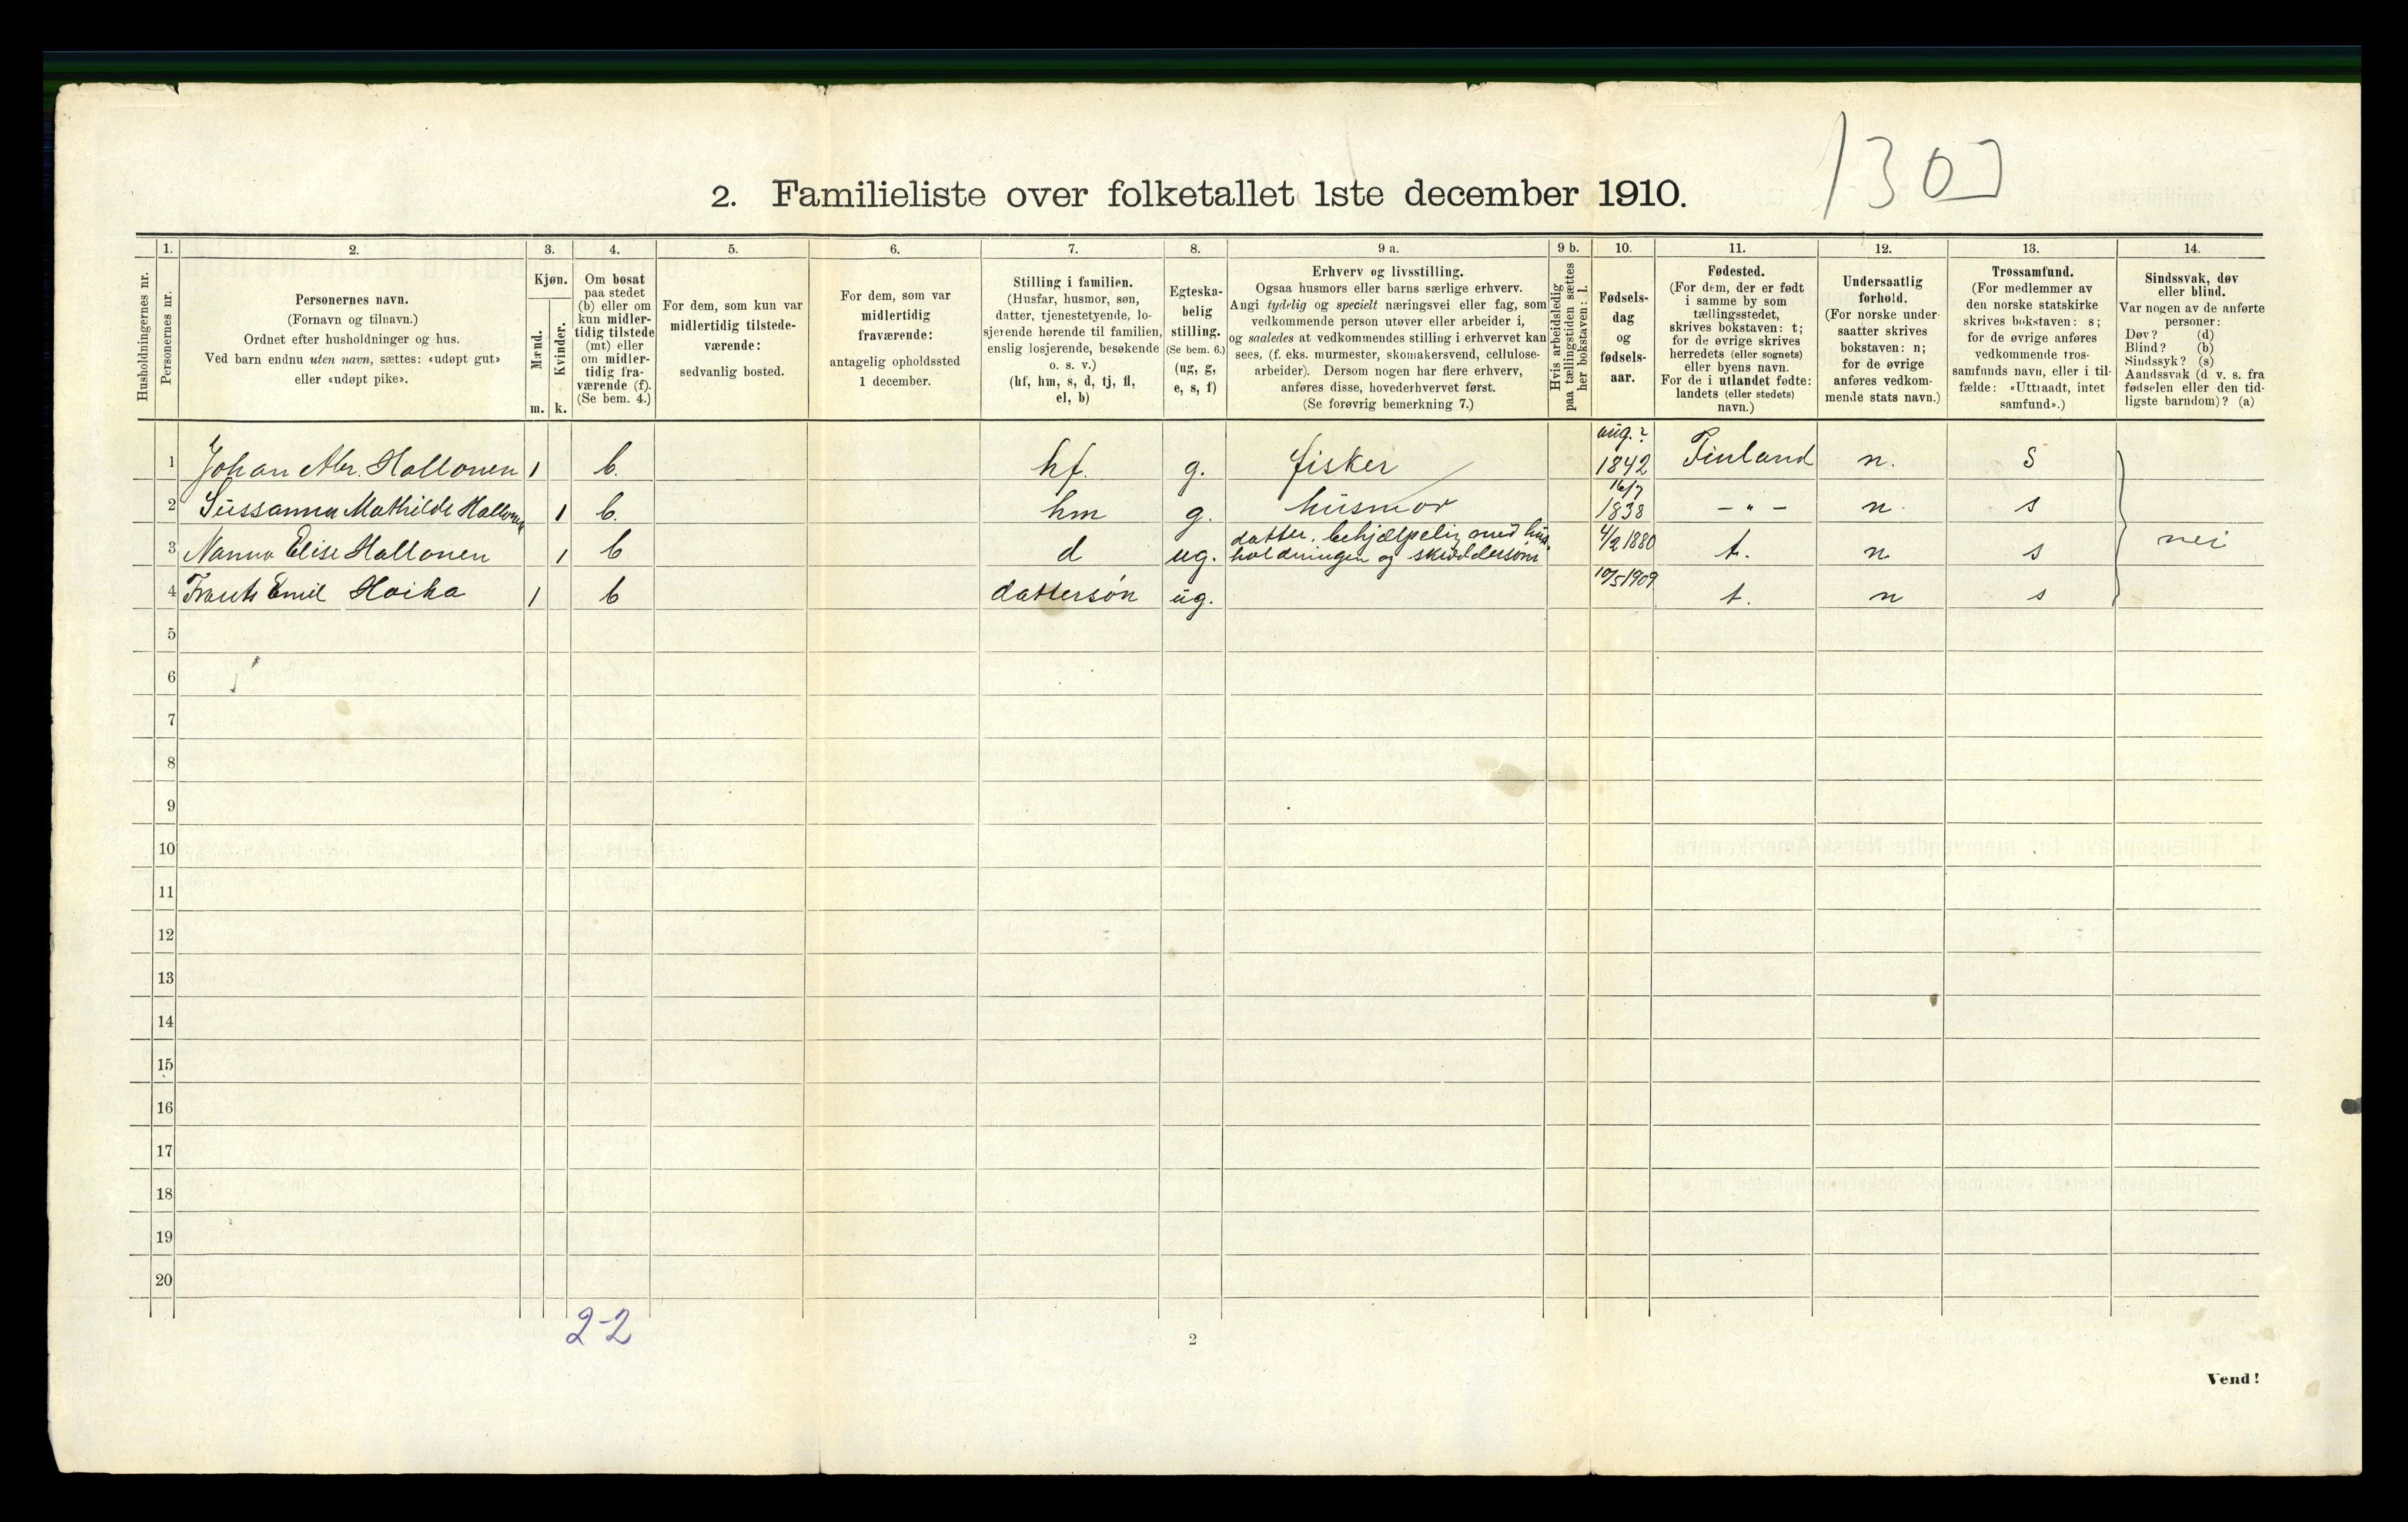 130
2. Familieliste over folketallet 1ste december 1910.
Husholdningernes nr.
1.
Personernes nr.
2.
Personernes navn.
(Fornavn og tilnavn.)
Ordnet efter husholdninger og hus.
Ved barn endnu uten navn, sættes: «udøpt gut»
eller «udøpt pike».
3.
Kjøn.
Mænd.
Kvinder.
m. k.
4.
Om bosat
paa stedet
(b) eller om
kun midler-
tidig tilstede
(mt) eller
om midler-
tidig fra-
værende (f).
(Se bem. 4.)
5.
For dem, som kun var
midlertidig tilstede-
værende:
sedvanlig bosted.
6.
For dem, som var
midlertidig
fraværende:
antagelig opholdssted
1 december.
7.
Stilling i familien.
(Husfar, husmor, søn,
datter, tjenestetyende, lo-
sjerende hørende til familien,
enslig losjerende, besøkende
o. s. v.)
(hf, hm, s, d, tj, fl,
el, b)
8.
Egteska-
belig
stilling.
(Se bem. 6.)
(ug, g,
e, s, f)
9 a.
Erhverv og livsstilling.
Ogsaa husmors eller barns særlige erhverv.
Angi tydelig og specielt næringsvei eller fag, som
vedkommende person utøver eller arbeider i,
og saaledes at vedkommendes stilling i erhvervet kan
sees, (f. eks. murmester, skomakersvend, cellulose-
arbeider). Dersom nogen har flere erhverv,
anføres disse, hovederhvervet først.
(Se forøvrig bemerkning 7.)
9 b.
Hvis arbeidsledig
paa tællingstiden sættes
her bokstaven: l.
10.
Fødsels-
dag
og
fødsels-
aar.
11.
Fødested.
(For dem, der er født
i samme by som
tællingsstedet,
skrives bokstaven: t;
for de øvrige skrives
herredets (eller sognets)
eller byens navn.
For de i utlandet fødte:
landets (eller stedets)
navn.)
12.
Undersaatlig
forhold.
(For norske under-
saatter skrives
bokstaven: n;
for de øvrige
anføres vedkom-
mende stats navn.)
13.
Trossamfund.
(For medlemmer av
den norske statskirke
skrives bokstaven: s;
for de øvrige anføres
vedkommende tros-
samfunds navn, eller i til-
fælde: «Uttraadt, intet
samfund».)
14.
Sindssvak, døv
eller blind.
Var nogen av de anførte
personer:
Døv? (d)
Blind? (b)
Sindssyk? (s)
Aandssvak (d v. s. fra
fødselen eller den tid-
ligste barndom)? (a)
1 Johan Abr. Hallonen 1 b. hf. g. fisker aug. ? 1842 Finland n. s
2 Sussanna Mathilde Hallonen 1 b. hm g. husmor 16/7 1838 - " - n. s
3 Nanna Elise Hallonen 1 b d ug. datter, behjælpelig med hus-
holdningen og skræddersøm 4/2 1880 t. n s nei
4 Frants Emil Hoika 1 b dattersøn ug. 10/5 1909 t. n s
5
6
7
8
9
10
11
12
13
14
15
16
17
18
19
20
2-2
2
Vend!